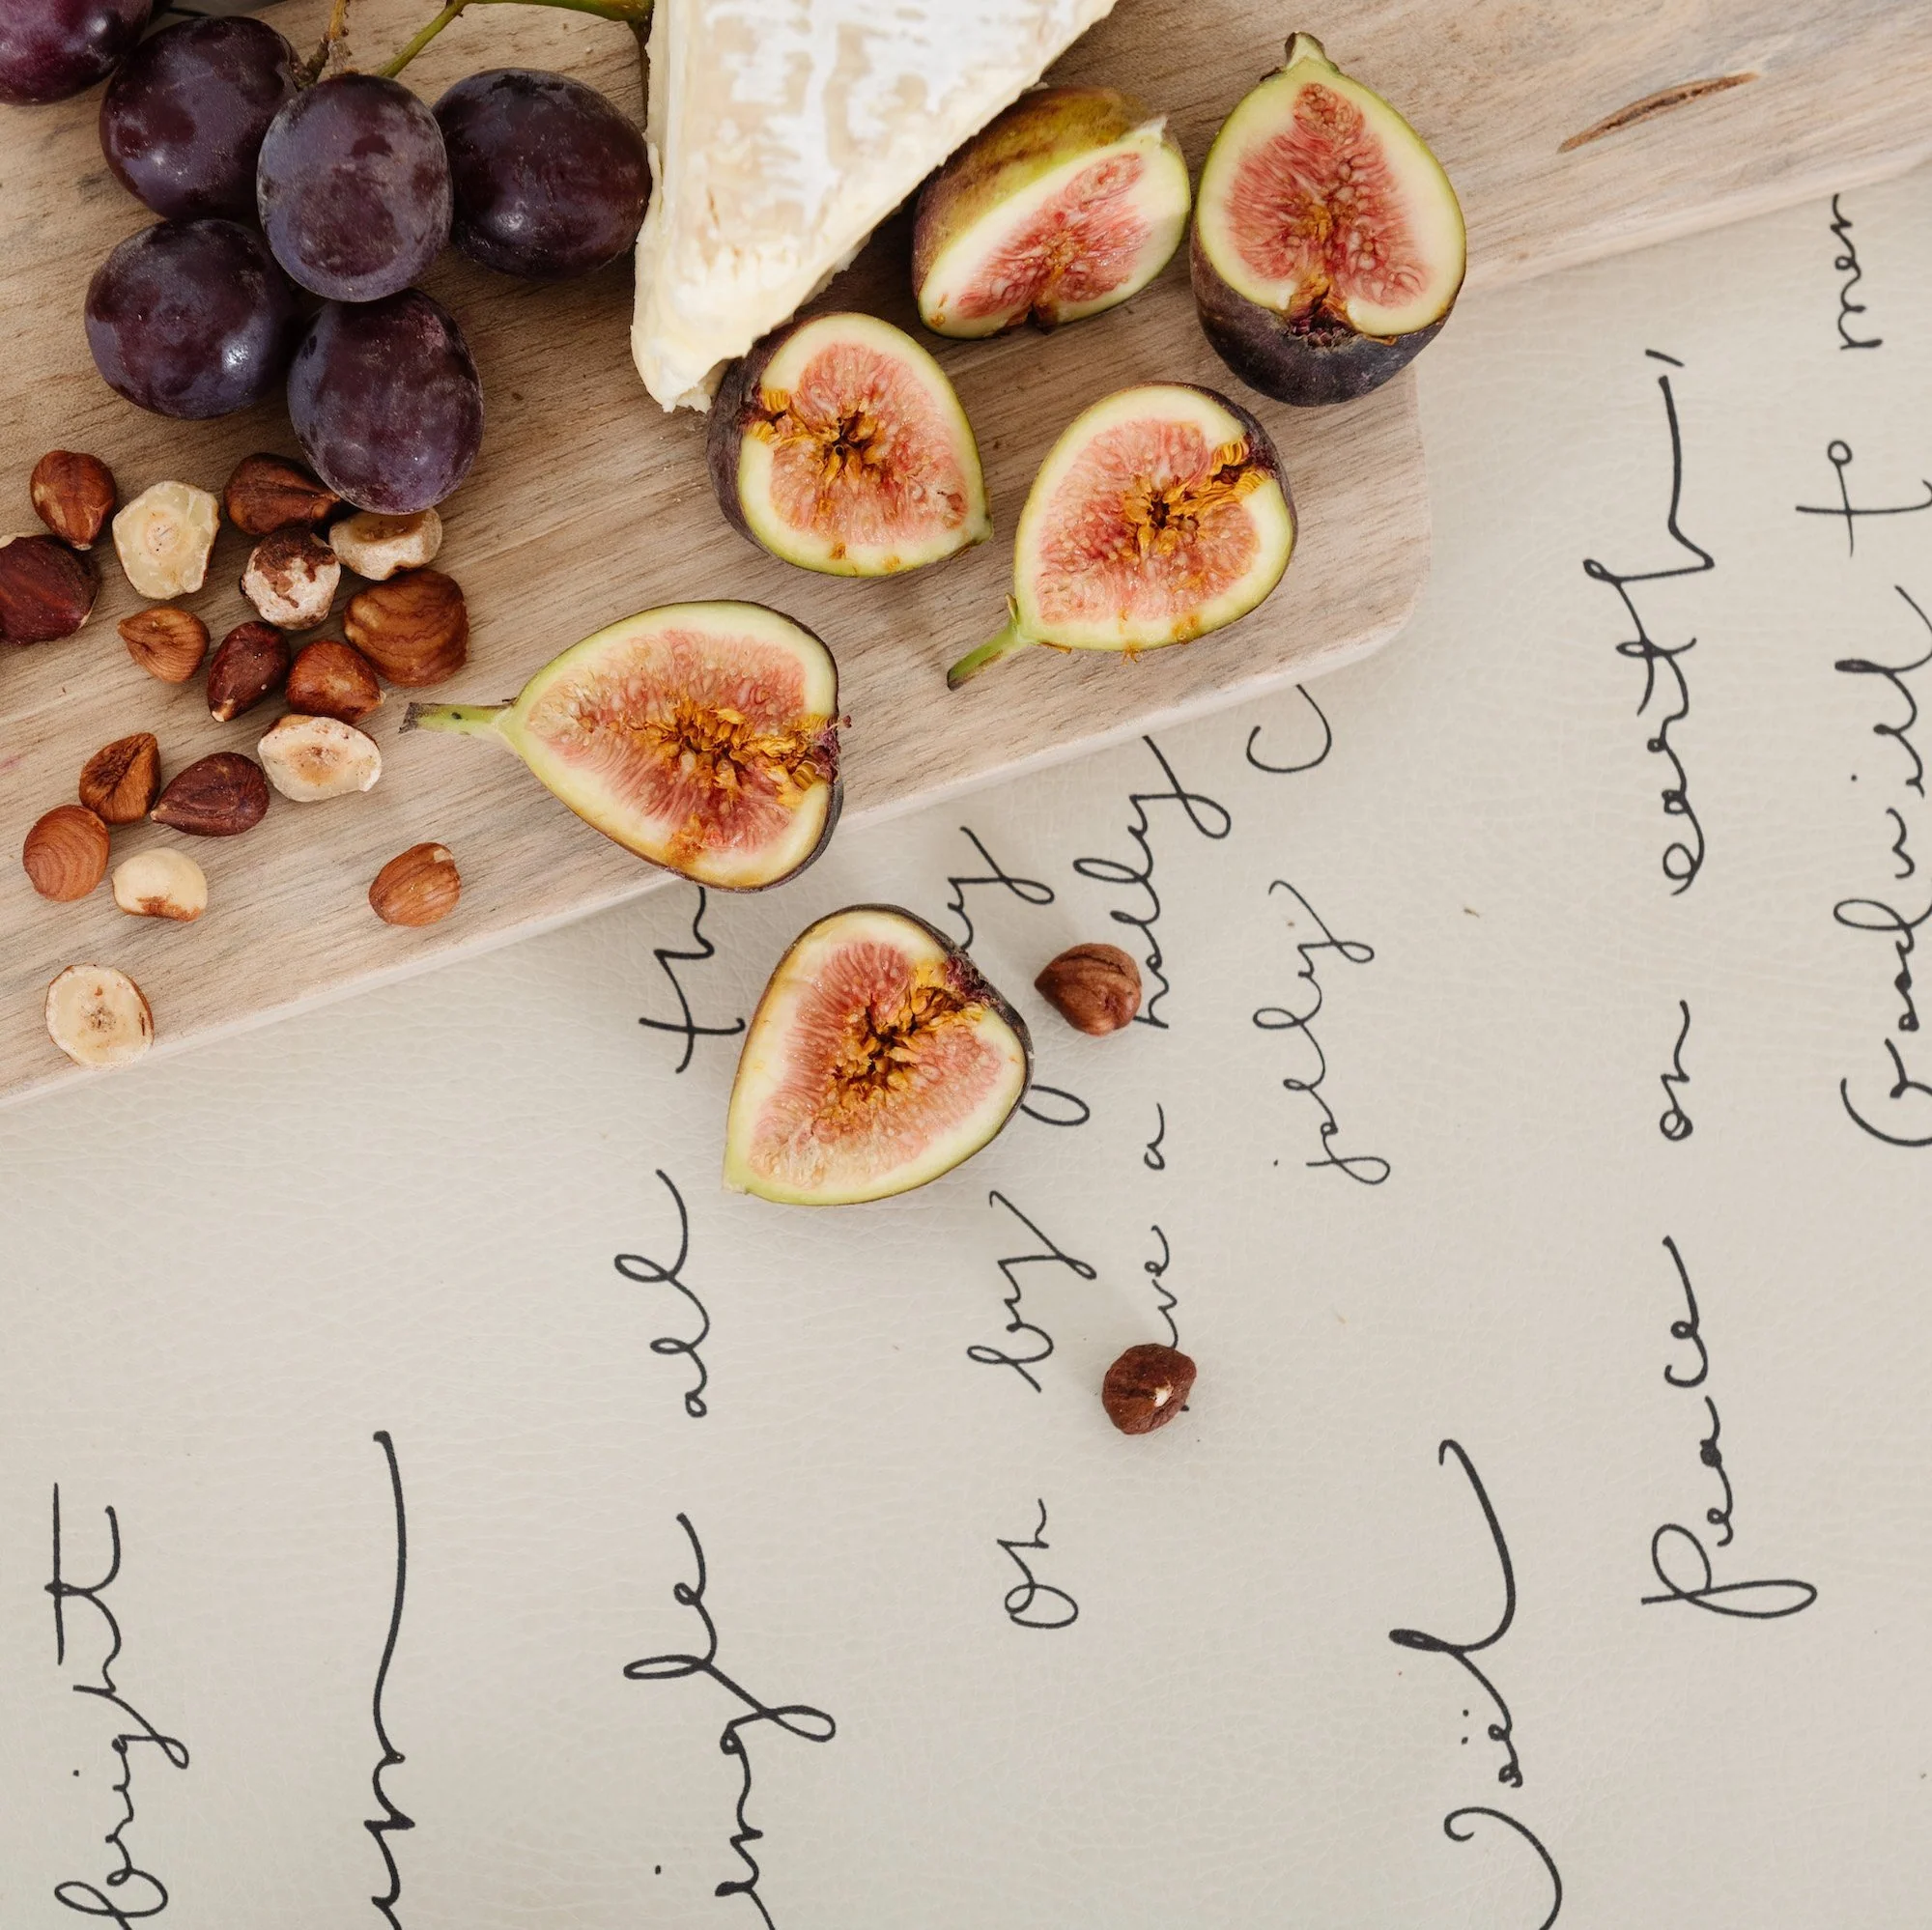 bright
ingle all th
Oh by g y
ve a holly
jolly C
Noël
Peace on earth,
Goodwill to men